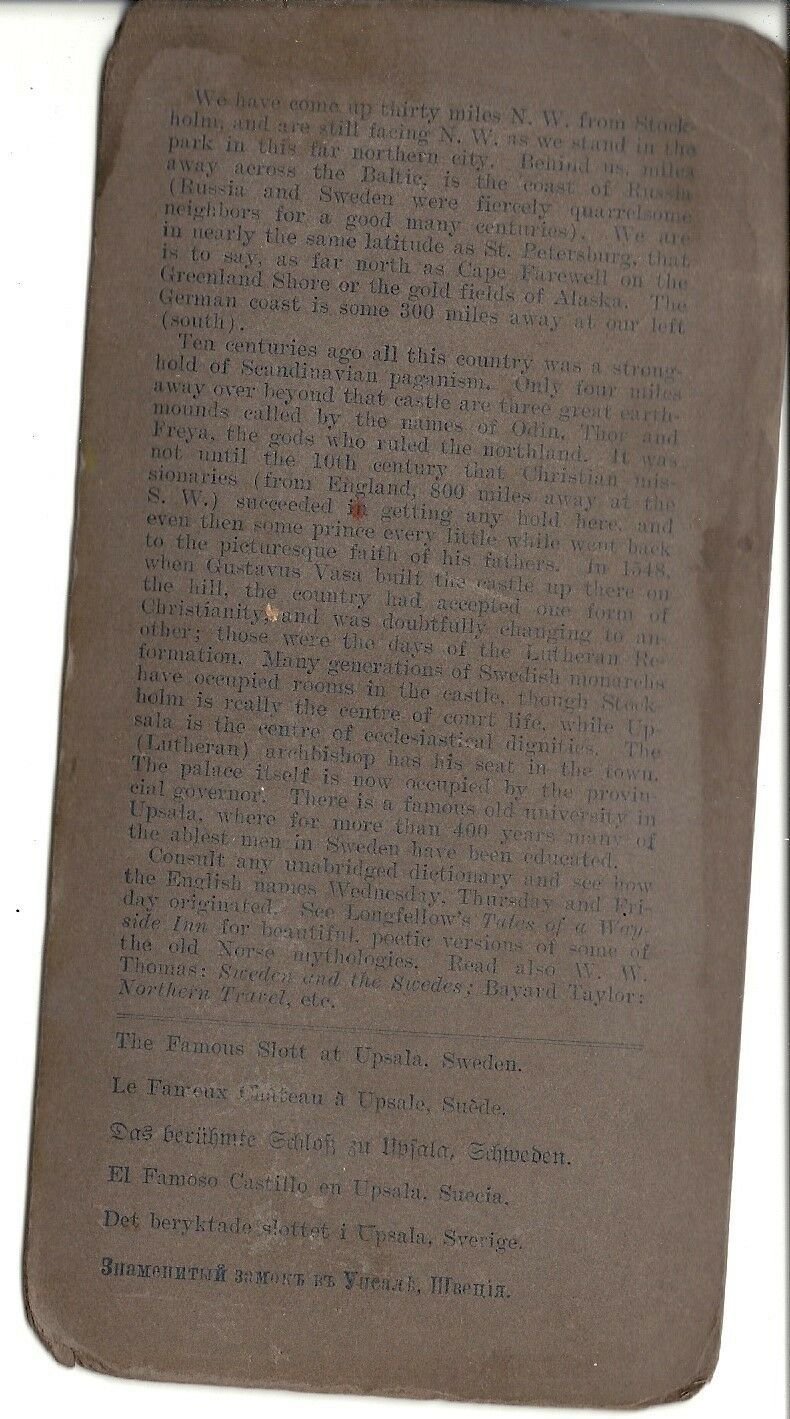 We have come up thirty miles N. W. from Stock-
holm, and are still facing N. W. as we stand in the
park in this far northern city. Behind us, miles
away across the Baltic, is the coast of Russia
(Russia and Sweden were fiercely quarrelsome
neighbors for a good many centuries). We are
in nearly the same latitude as St. Petersburg, that
is to say, as far north as Cape Farewell on the
Greenland Shore or the gold fields of Alaska. The
German coast is some 300 miles away at our left
(south).
Ten centuries ago all this country was a strong-
hold of Scandinavian paganism. Only four miles
away over beyond that castle are three great earth-
mounds called by the names of Odin, Thor and
Freya, the gods who ruled the northland. It was
not until the 10th century that Christian mis-
sionaries (from England, 800 miles away at the
S. W.) succeeded in getting any hold here, and
even then some prince every little while went back
to the picturesque faith of his fathers. In 1548,
when Gustavus Vasa built the castle up there on
the hill, the country had accepted one form of
Christianity, and was doubtfully changing to an-
other; those were the days of the Lutheran Re-
formation. Many generations of Swedish monarchs
have occupied rooms in the castle, though Stock-
holm is really the centre of court life, while Up-
sala is the centre of ecclesiastical dignities. The
(Lutheran) archbishop has his seat in the town.
The palace itself is now occupied by the provin-
cial governor. There is a famous old university in
Upsala, where for more than 400 years many of
the ablest men in Sweden have been educated.
Consult any unabridged dictionary and see how
the English names Wednesday, Thursday and Fri-
day originated. See Longfellow's Tales of a Way-
side Inn for beautiful, poetic versions of some of
the old Norse mythologies. Read also W. W.
Thomas: Sweden and the Swedes; Bayard Taylor:
Northern Travel, etc.
The Famous Slott at Upsala, Sweden.
Le Fameux Château à Upsale, Suède.
Das berühmte Schloß zu Upsala, Schweden.
El Famoso Castillo en Upsala, Suecia.
Det beryktade slottet i Upsala, Sverige.
Знаменитый замокъ въ Упсалѣ, Швеція.